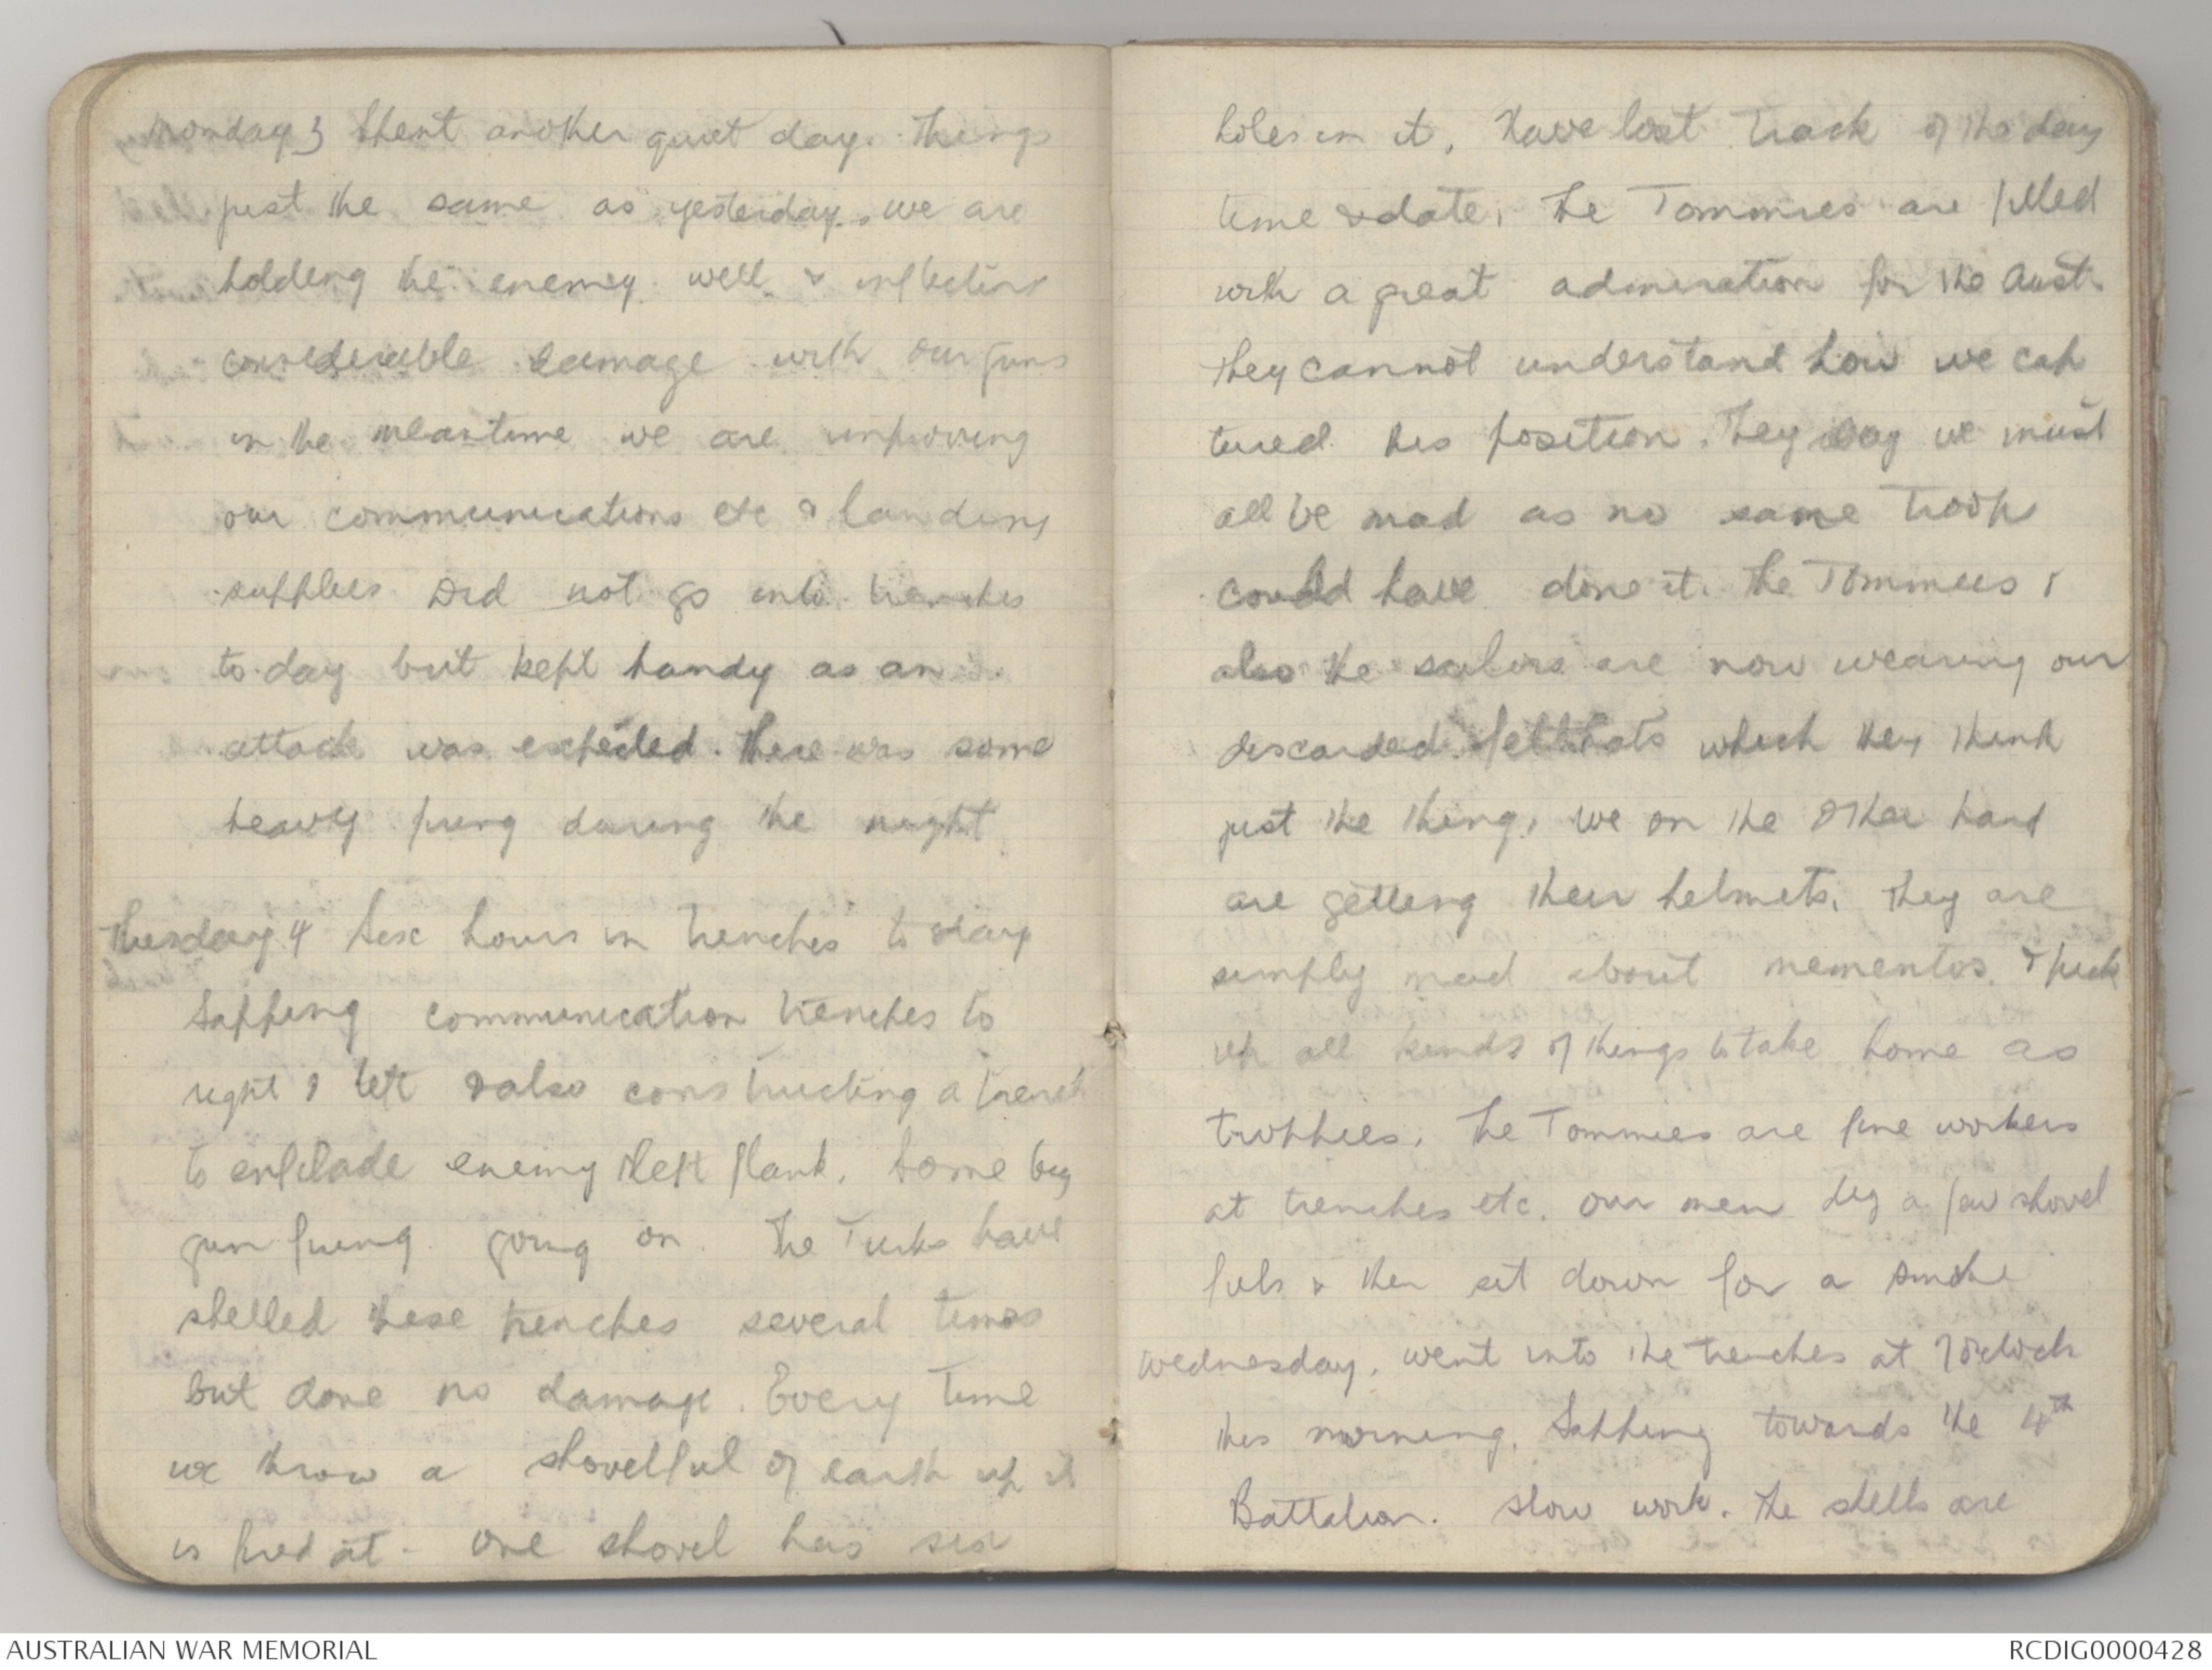 Monday 3 Spent another quiet day. Things
just the same as yesterday. we are
holding the enemy well & inflicting
considerable damage with our guns
in the meantime we are improving
our communications etc & landing
supplies Did not go into trenches
to-day but kept handy as an
attack was expected. There was some
heavy firing during the night
Thuesday 4 Six hours in trenches to day
Sapping communication trenches to
right & left & also constructing a trench
to enfilade enemy left flank. Some big
gun firing going on. The Turks have
shelled these trenches several times
but done no damage. Every time
we throw a shovelful of earth up it
is fired at - one shovel has six
holes in it. Have lost track of the day
time & date. The Tommies are filled
with a great admiration for the Aust.
They cannot understand how we cap
tured this position. They say we must
all be mad as no sane troops
could have done it. The Tommies &
also the sailors are now wearing our
discarded felt hats which they think
just the thing, we on the other hand
are getting their helmets. They are
simply mad about mementos. & pick
up all kinds of things to take home as
trophies. The Tommies are fine workers
at trenches etc. our men dig a few shovel
fuls & then sit down for a smoke
Wednesday. went into the trenches at 7 oclock
this morning. Sapping towards the 4th
Battalion. Slow work. The shells are
AUSTRALIAN WAR MEMORIAL
RCDIG0000428